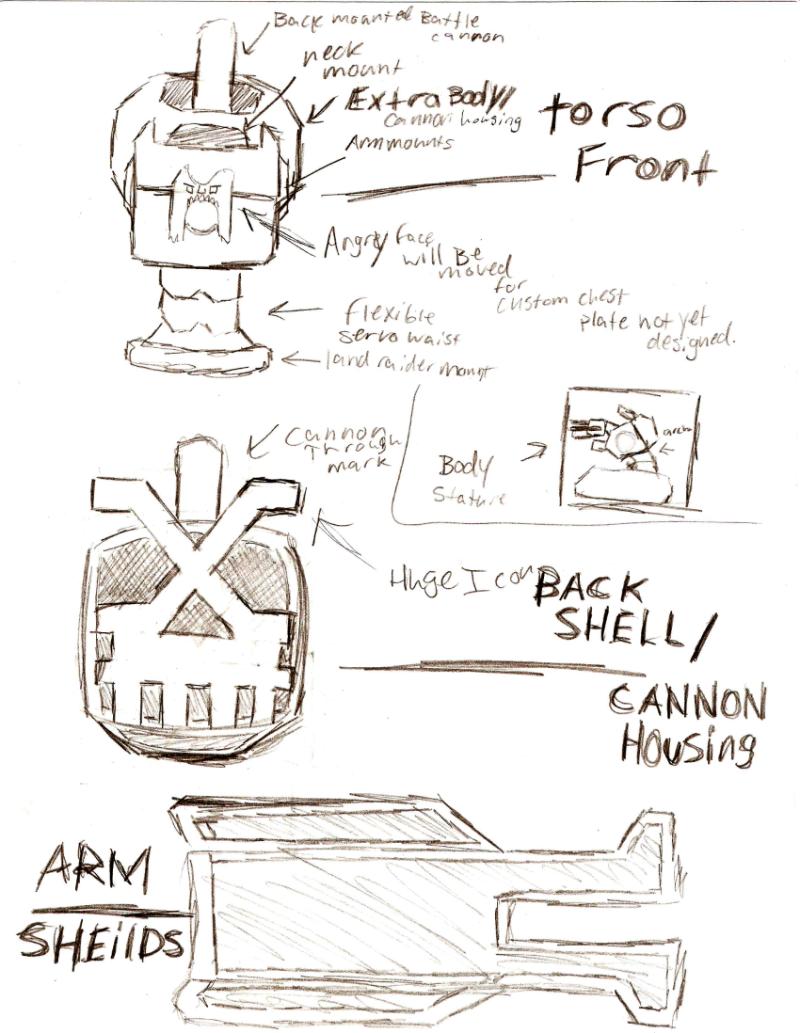 Back mounted Battle
cannon
neck
mount
Extra Body/
cannon housing
Arm mounts
torso
Front
Angry face
will Be
moved
for
custom chest
plate not yet
designed.
flexible
servo waist
land raider mount
Cannon
Through
mark
Body
Stature
arch
Huge Icon
BACK
SHELL/
CANNON
Housing
ARM
SHEilDS